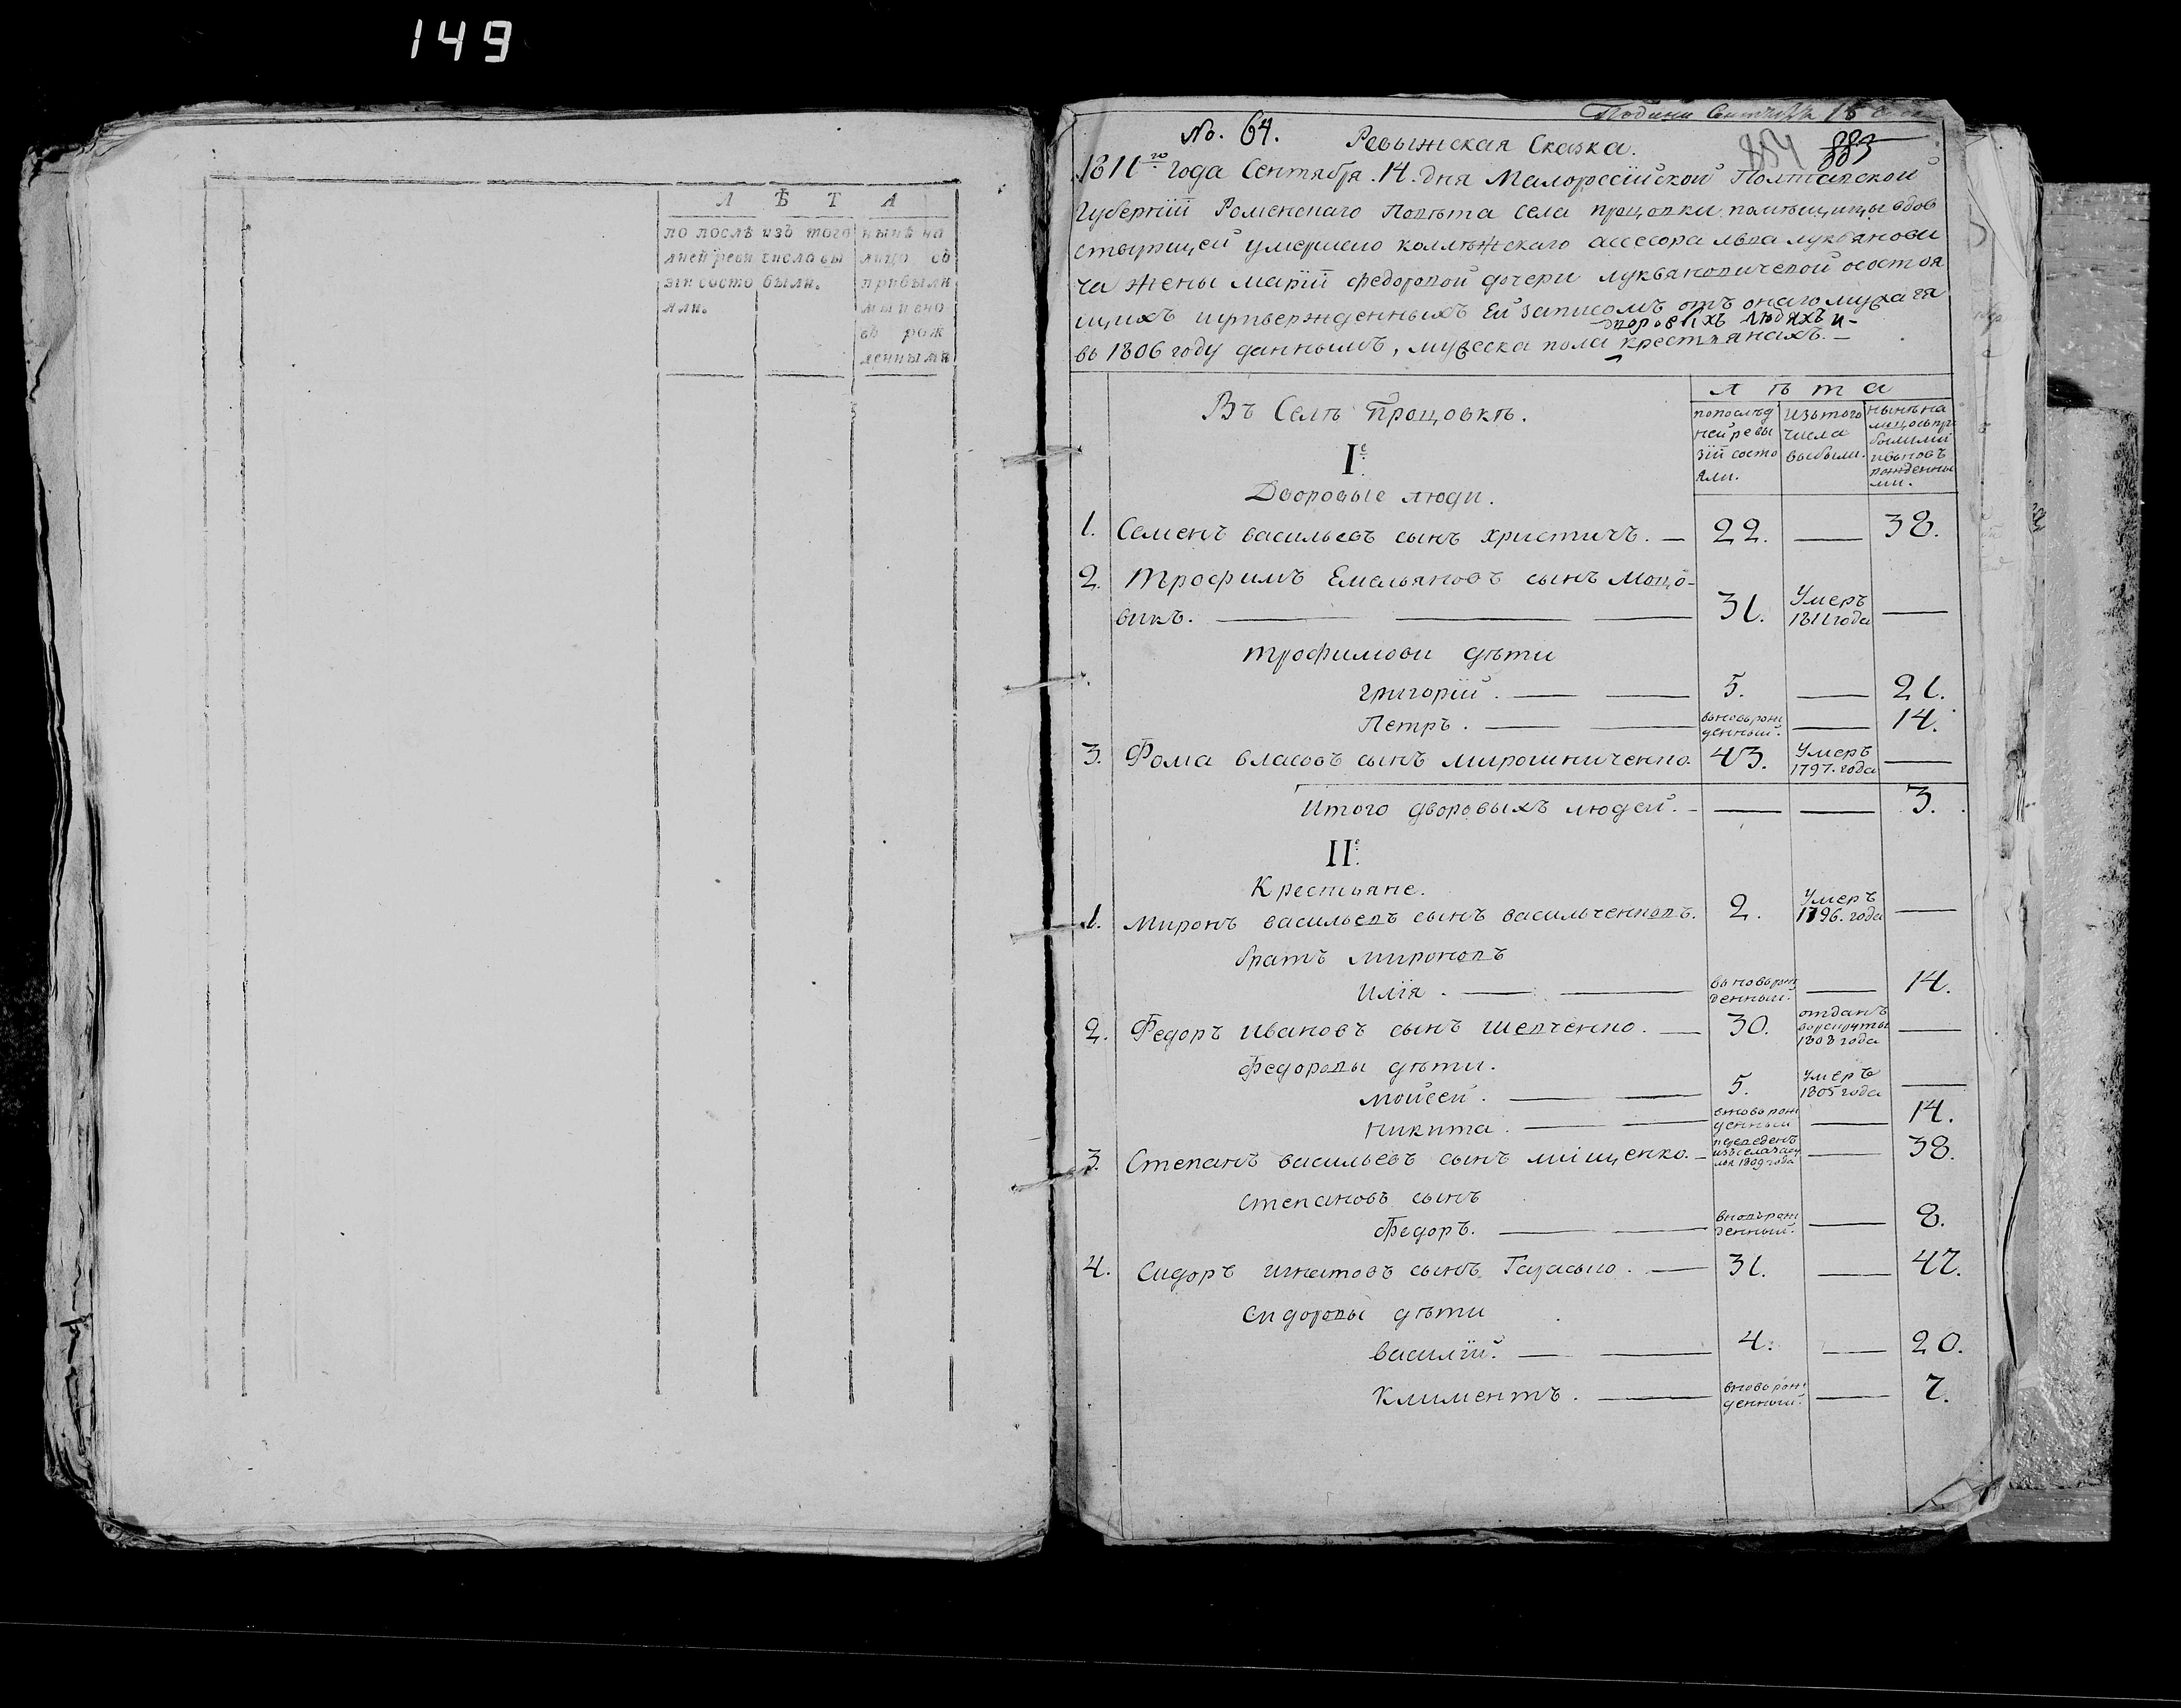 149
Л Ѣ Т А
по послѣ
дней реви
зіи состо
яли.
изъ того
числа вы
были.
нынѣ на
лицо съ
прибыли
ми и вно
въ рож
денными
Подана Сентября 15
No. 64. Ревыжская Сказка. 884 883
1811го года Сентября .14. дня Малороссійской Полтавской
Губерніи Роменскаго Повѣта села процовки помѣщицы вдов
ствующей умершего коллѣжскаго ассесора льва лукьянови
ча жены маріи федоровой дочери лукьяновичевой осостоя
щихъ иутвержденныхъ Ей записомъ отъ онаго мужа ея
дворовыхъ людяхъ и-
въ 1806 году даннымъ, мужеска пола крестьянахъ.
Въ Селѣ Процовкѣ.
лѣта
попослѣд
ней ревы
зіи состо
яли.
изътого
числа
выбыли.
нынѣ на
лицо съпри
былими
ивновь
рожденны
ми.
Iе.
Дворовые люди.
1. Семенъ васильевъ сынъ христичъ. — 22. — 38.
2. Трофимъ Емельяновъ сынъ Моцо-
викъ. — 31. Умеръ 1811 года —
трофимови дѣти
григорій. — 5. — 21.
Петръ. — вьновьрож денный. — 14.
3. Фома власовъ сынъ мирошниченко. 43. Умеръ 1797. года —
Итого дворовыхъ людей. — — — 3.
IIе.
Крестьяне.
1. Миронъ васильевъ сынъ васильченковъ. 2. Умеръ 1796. года —
братъ мироновъ
илія. — вьновьрож денный. — 14.
2. Федоръ ивановъ сынъ шевченко. — 30. отданъ ворекруты 1808 года —
федоровы дѣти.
мойсей. — 5. Умеръ 1805 года —
никита. — вновьрож денный — 14.
3. Степанъ васильевъ сынъ міщенко. — переведенъ изъ села 1809 года — 38.
степановъ сынъ
федоръ. — вновьрож денный. — 8.
4. Сидоръ игнатовъ сынъ — 31. — 47.
сидоровы дѣти
василій. — 4. — 20.
Климентъ. — вновьрож денный. — 7.